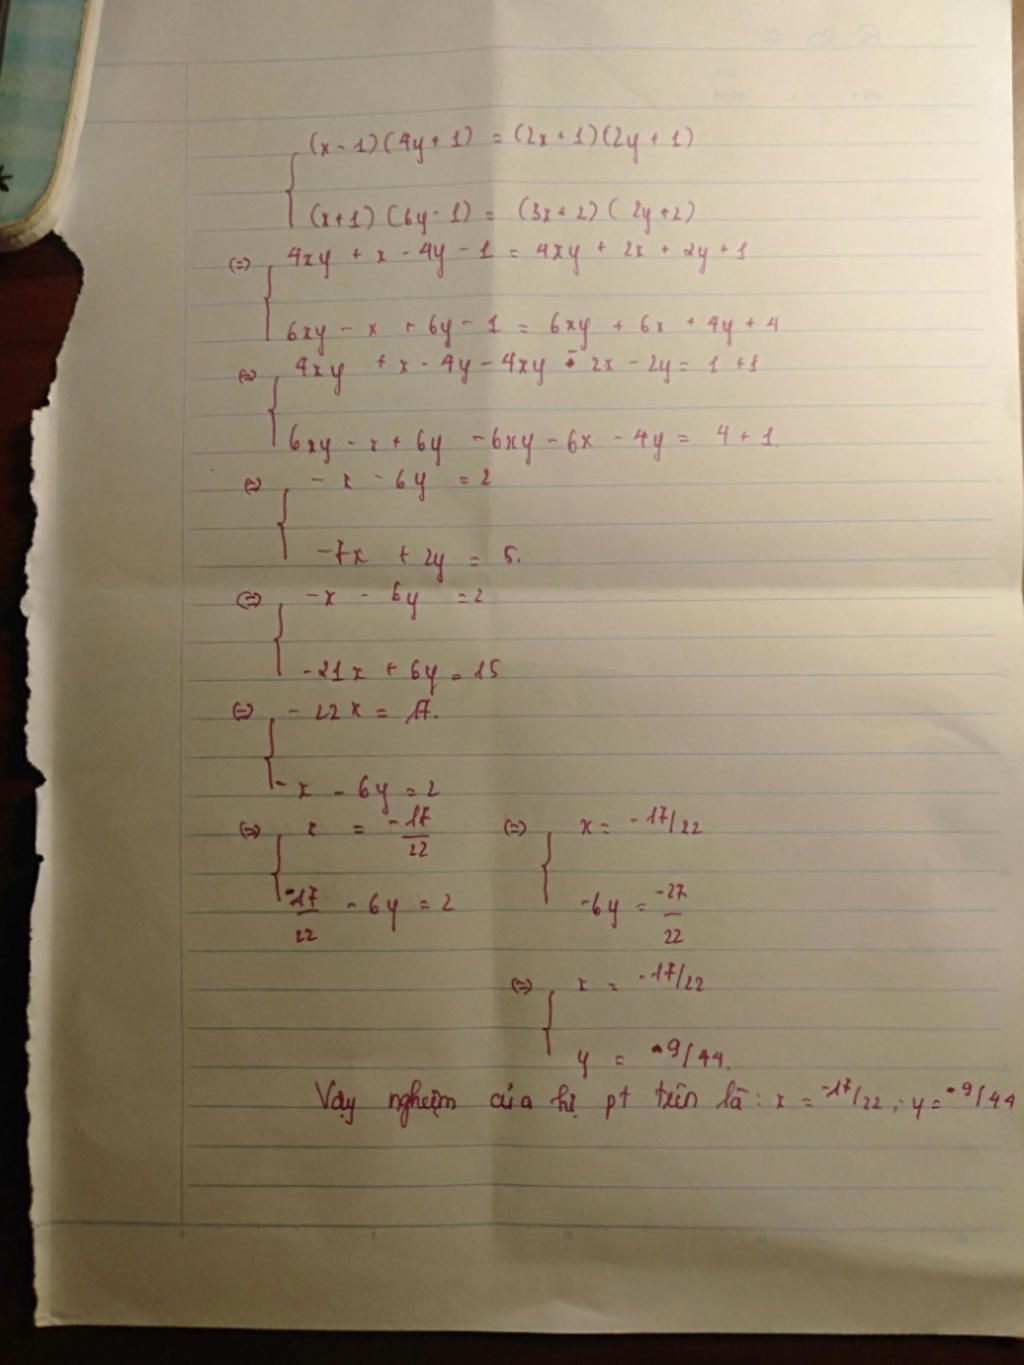 (x - 1)(4y + 1) = (2x + 1)(2y + 1)
(x+1) (6y - 1) = (3x + 2) (2y+2)
(=) 4xy + x - 4y - 1 = 4xy + 2x + 2y + 1
6xy - x + 6y - 1 = 6xy + 6x + 4y + 4
(=) 4xy + x - 4y - 4xy - 2x - 2y = 1 + 1
6xy - x + 6y - 6xy - 6x - 4y = 4 + 1.
(=) - x - 6y = 2
-7x + 2y = 5.
(=) -x - 6y = 2
-21x + 6y = 15
(=) - 22x = 17.
- x - 6y = 2
(=) x = -17/22 (=) x = -17/22
-17/22 - 6y = 2 -6y = -27/22
(=) x = -17/22
y = -9/44.
Vậy nghiệm của hệ pt trên là : x = -17/22 ; y = -9/44